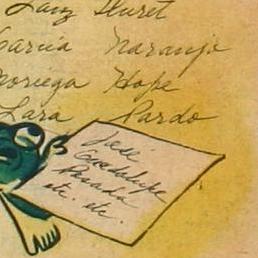 Lanz Duret
García Naranjo
Noriega Hope
Lara Pardo
José
Guadalupe
Posada
etc. etc.